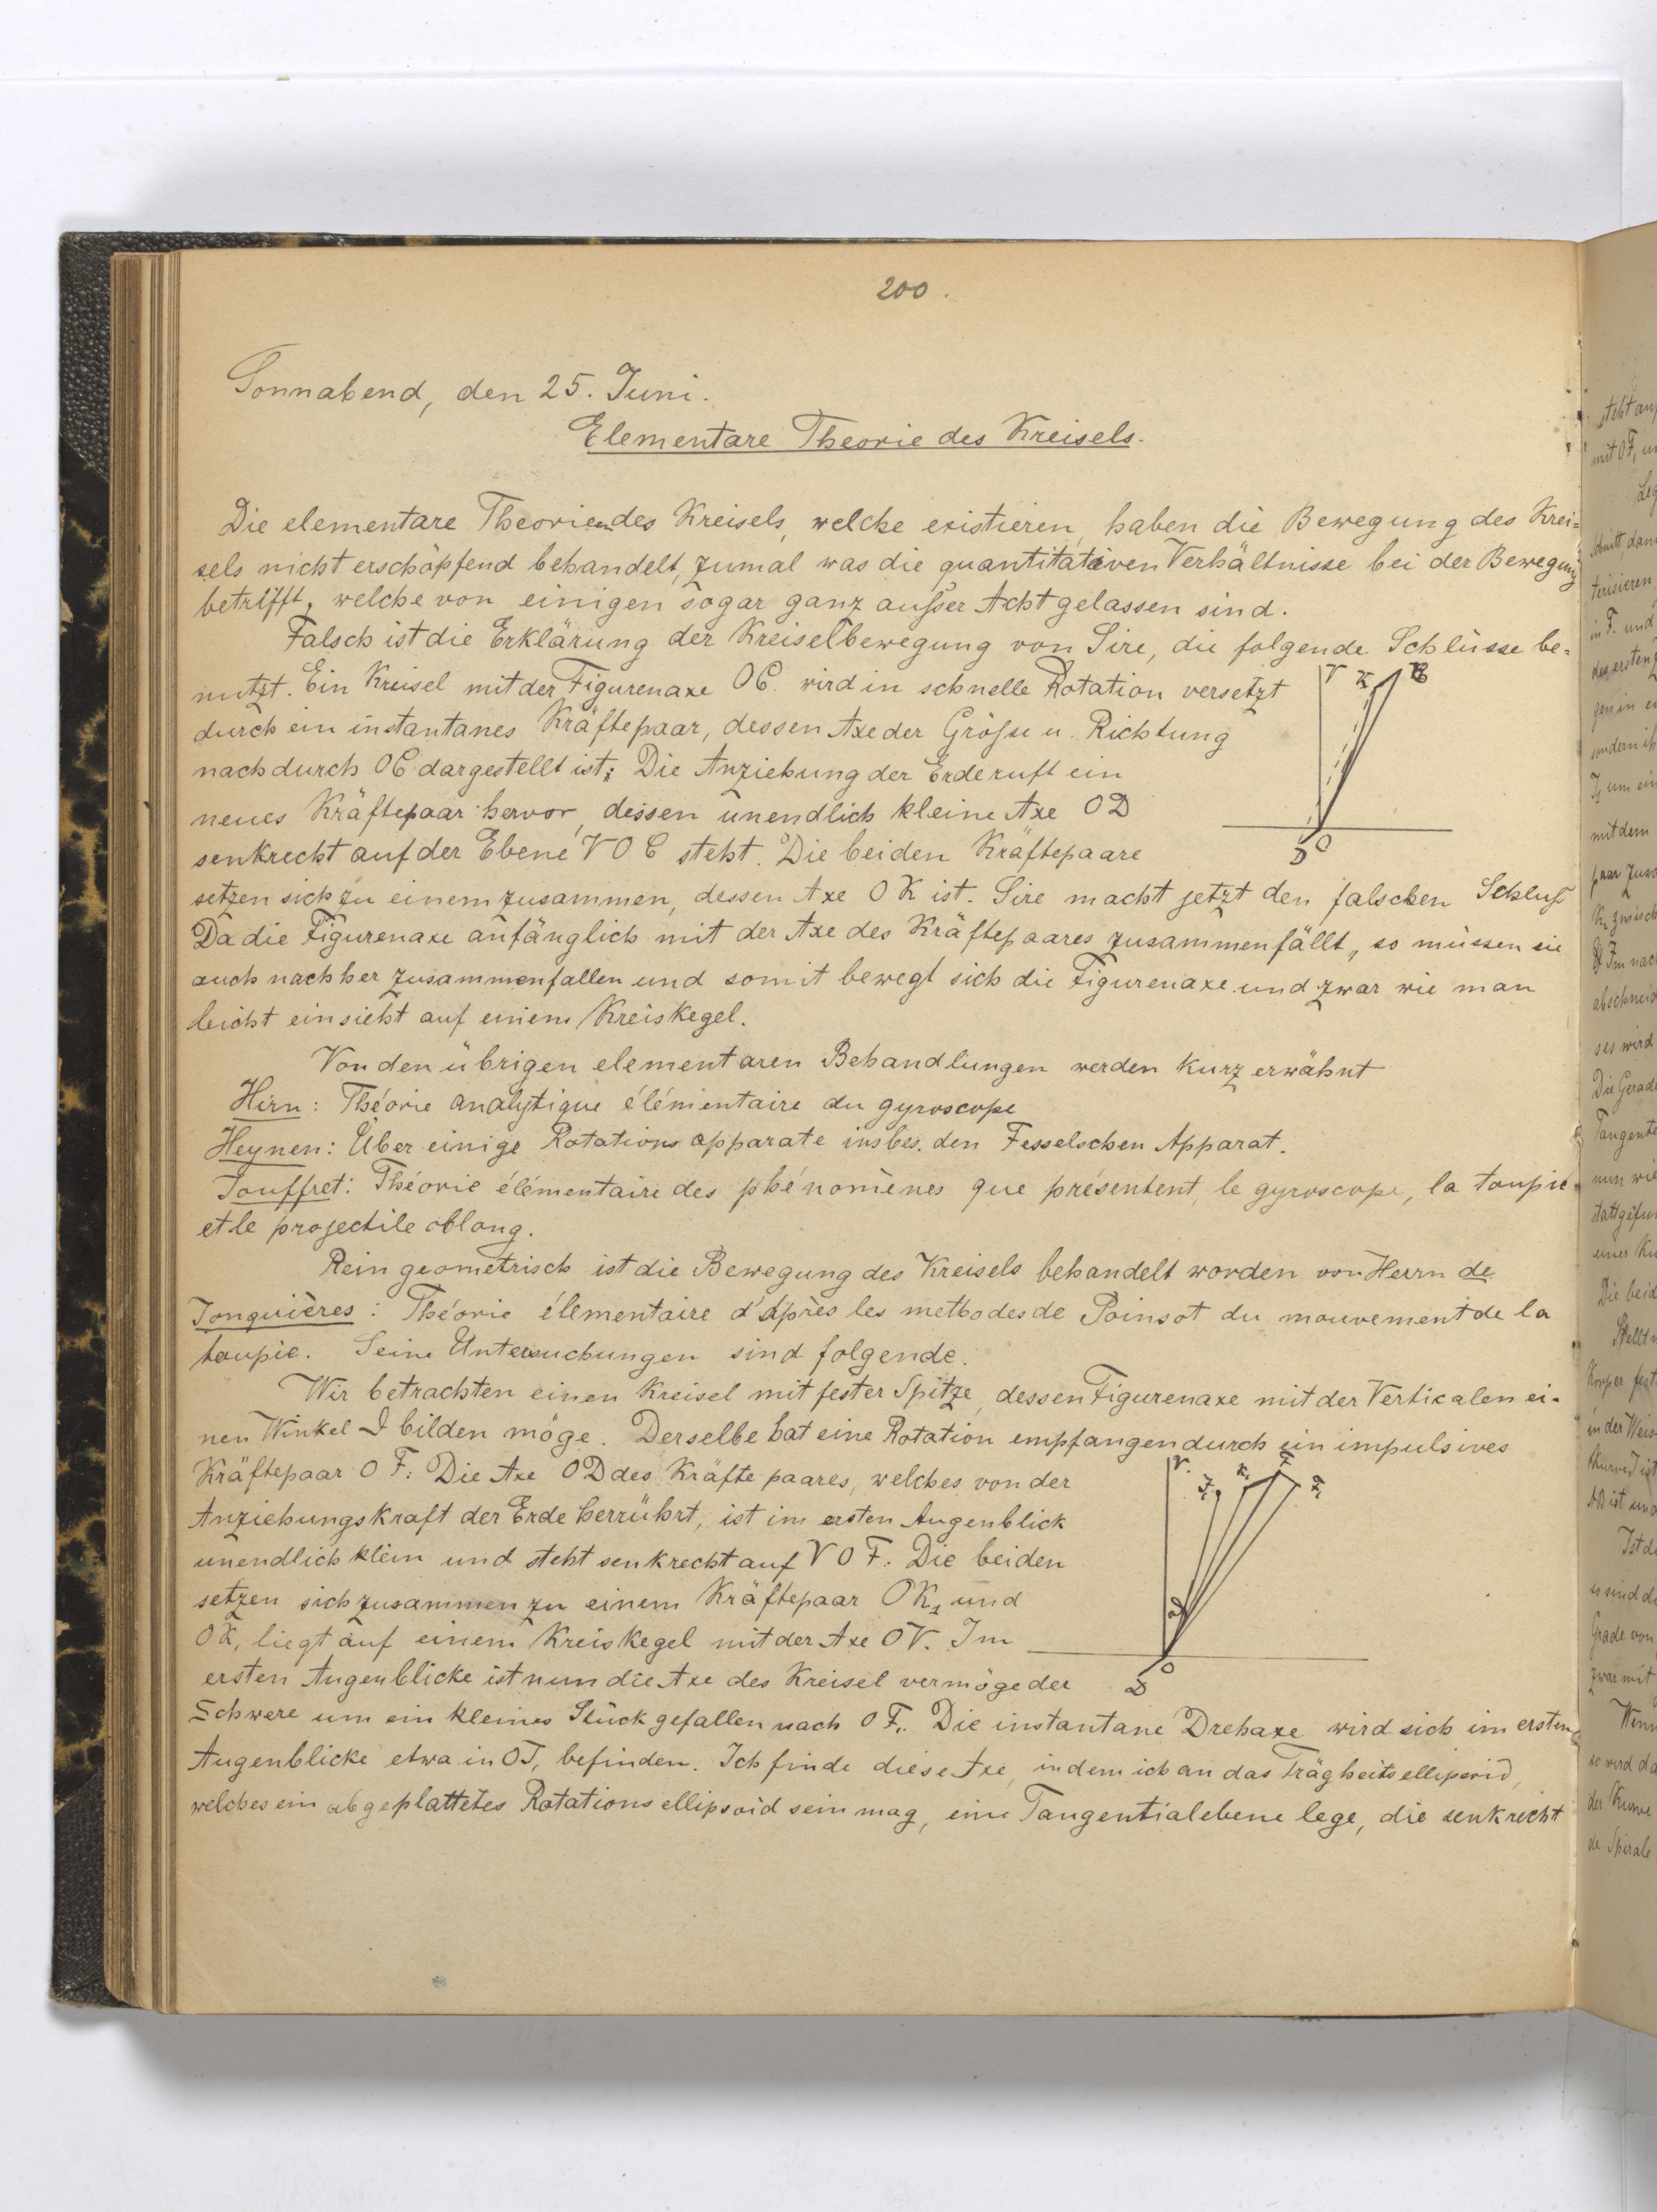 200.
Sonnabend, den 25. Juni.
Elementare Theorie des Kreisels.
Die elementare Theorien des Kreisels, welche existieren, haben die Bewegung des Krei=
sels nicht erschöpfend behandelt, zumal was die quantitativen Verhältnisse bei der Bewegung
betrifft, welche von einigen sogar ganz außer Acht gelassen sind.
Falsch ist die Erklärung der Kreiselbewegung von Sire, die folgende Schlüsse be=
nutzt. Ein Kreisel mit der Figurenaxe OC. wird in schnelle Rotation versetzt
durch ein instantanes Kräftepaar, dessen Axe der Größe u. Richtung
nach durch OC dargestellt ist; Die Anziehung der Erde ruft ein
neues Kräftepaar hervor, dessen unendlich kleine Axe OD
senkrecht auf der Ebene VOC steht. Die beiden Kräftepaare
setzen sich zu einem zusammen, dessen Axe OK ist. Sire macht jetzt den falschen Schluß
Da die Figurenaxe anfänglich mit der Axe des Kräftepaares zusammenfällt, so müssen sie
auch nachher zusammenfallen und somit bewegt sich die Figurenaxe und zwar wie man
leicht einsieht auf einem Kreiskegel.
V K C
D O
Von den übrigen elementaren Behandlungen werden kurz erwähnt
Hirn: Théorie analytique élémentaire du gyroscope
Heynen: Über einige Rotationsapparate insbes. den Fesselschen Apparat.
Jouffret: Théorie élémentaire des phénomènes que présentent le gyroscope, la toupie
et le projectile oblong.
Rein geometrisch ist die Bewegung des Kreisels behandelt worden von Herrn de
Jonquières: Théorie élementaire d'après les methodes de Poinsot du mouvement de la
toupie. Seine Untersuchungen sind folgende.
Wir betrachten einen Kreisel mit fester Spitze, dessen Figurenaxe mit der Verticalen ei-
nen Winkel ϑ bilden möge. Derselbe hat eine Rotation empfangen durch ein impulsives
Kräftepaar OF. Die Axe OD des Kräftepaares, welches von der
Anziehungskraft der Erde herrührt, ist im ersten Augenblick
unendlich klein und steht senkrecht auf VOF. Die beiden
setzen sich zusammen zu einem Kräftepaar OK₁ und
OK₁ liegt auf einem Kreiskegel mit der Axe OV. Im
ersten Augenblicke ist nun die Axe des Kreisel vermöge der
Schwere um ein kleines Stück gefallen nach OF₁. Die instantane Drehaxe wird sich im ersten
Augenblicke etwa in OJ₁ befinden. Ich finde diese Axe, indem ich an das Trägheitsellipsoid,
welches ein abgeplattetes Rotationsellipsoid sein mag, eine Tangentialebene lege, die senkrecht
V. J₁ K₁ F F₁
ϑ
D O